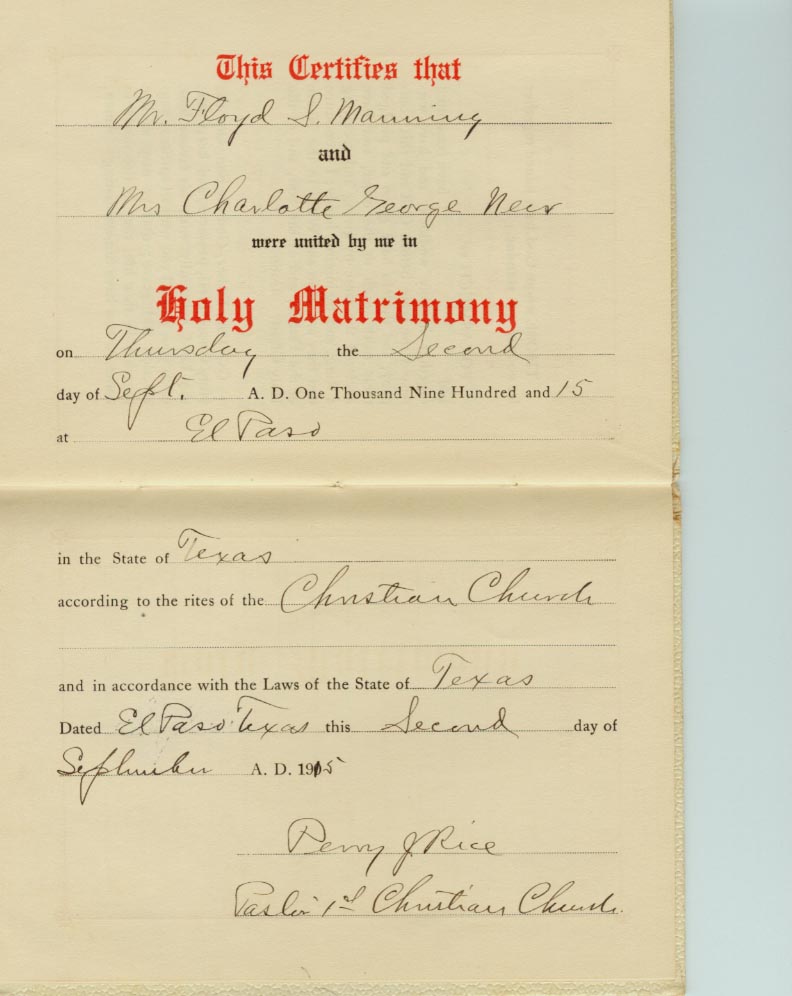 This Certifies that
Mr. Floyd S. Manning
and
Mrs Charlotte George New
were united by me in
Holy Matrimony
on Thursday the Second
day of Sept. A. D. One Thousand Nine Hundred and 15
at El Paso
in the State of Texas
according to the rites of the Christian Church
and in accordance with the Laws of the State of Texas
Dated El Paso Texas this Second day of
September A. D. 1915
Perry J Rice
Pastor 1st Christian Church.